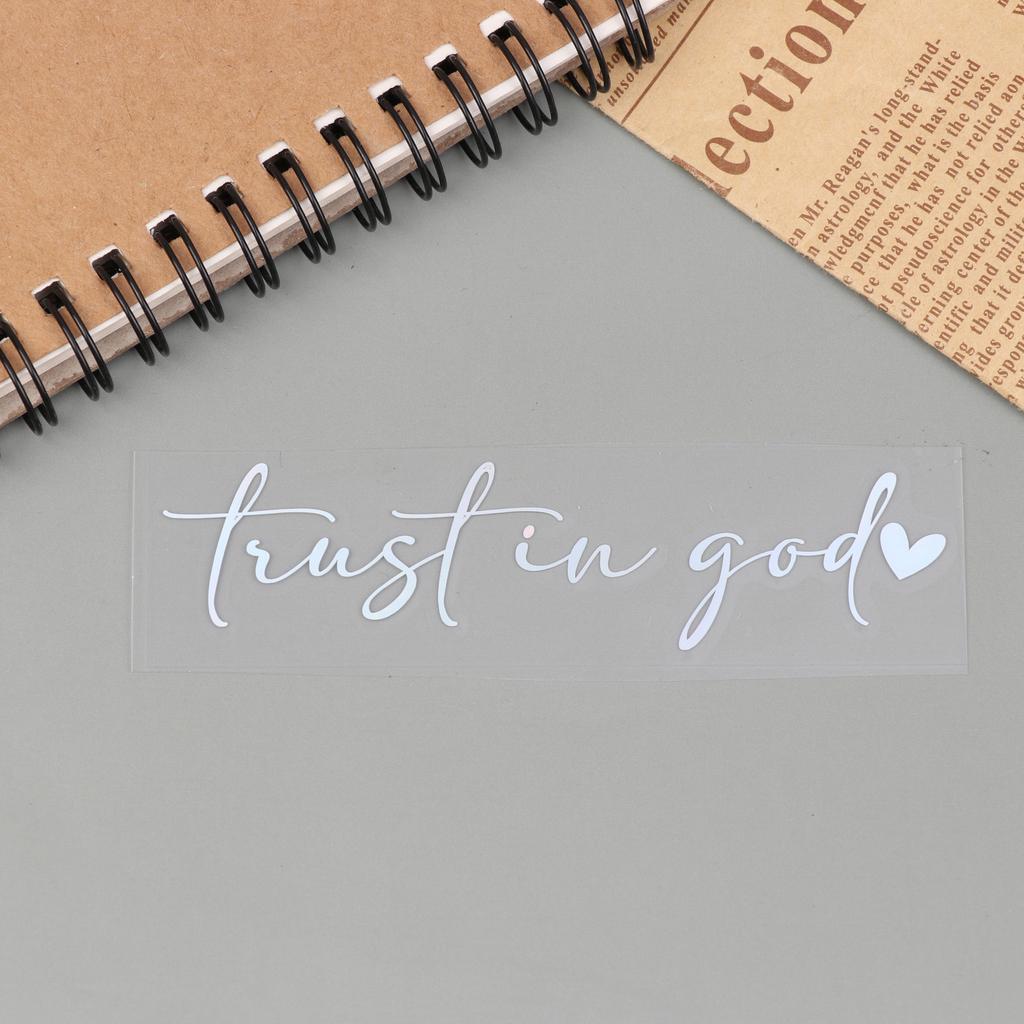 trust in god
lection
en Mr. Reagan's long-stand-
n astrology, and the White
wledgment that he has relied
e purposes, what is the basis
ce that he has not relied aon
ot pseudoscience for other
cle of astrology in the W
erning center of the
entific and milit
ng that it de
ides grou
espon